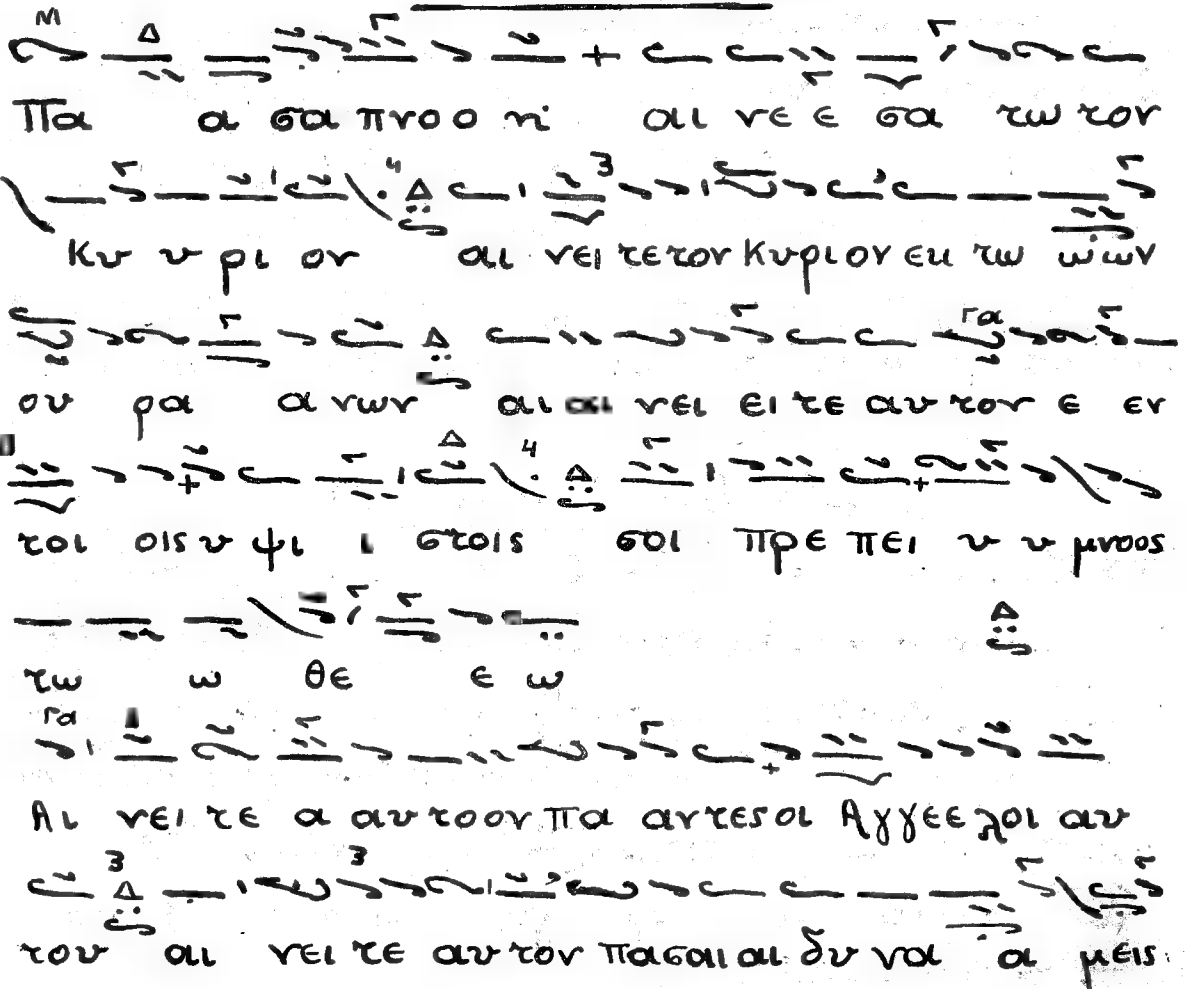 Πα α σα πνο ο η αι νε ε σα τω τον
Κυ υ ρι ον αι νει τε τον Κυριον εκ τω ων ων
ου ρα α νων αι αι νει ει τε αυ τον ε εν
τοι οις υ ψι ι στοις σοι πρε πει υ υ μνοος
τω ω θε ε ω
Αι νει τε α αυ τοον πα αντες οι Αγγεε λοι αυ
του αι νει τε αυ τον πασαι αι δυ να α μεις